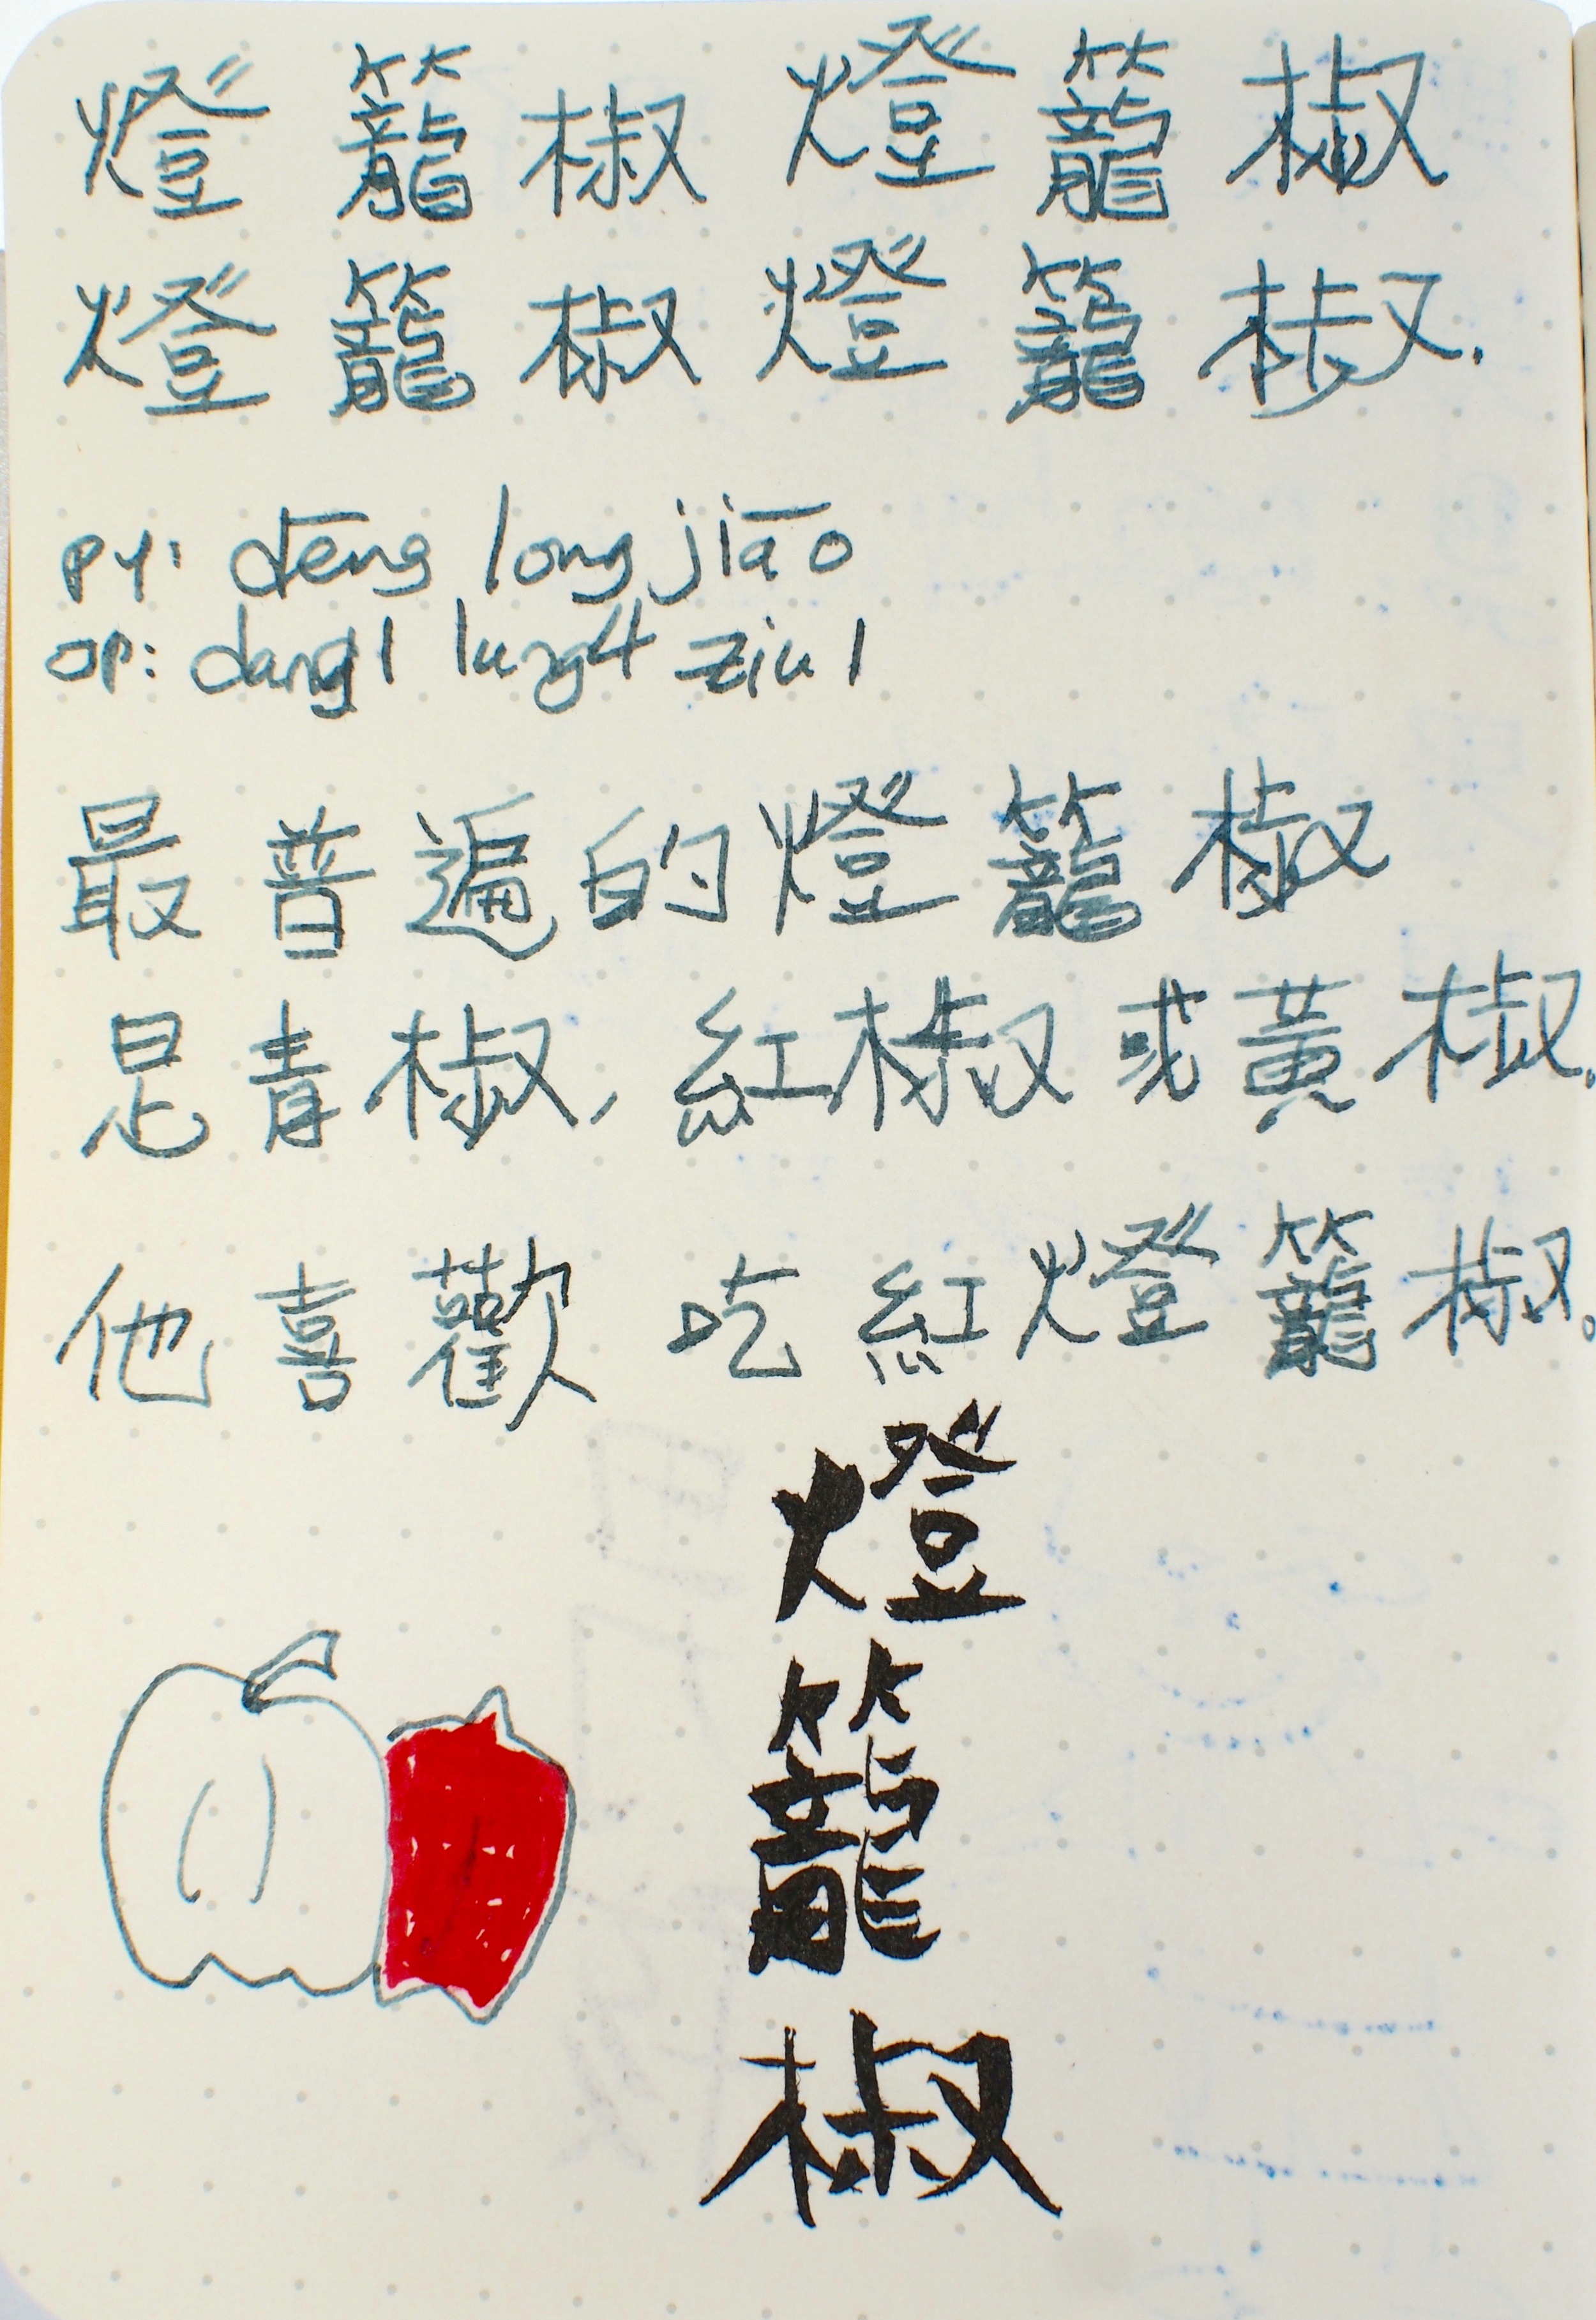 燈籠椒燈籠椒
燈籠椒燈籠椒.
PY: dēng long jiāo
JP: dang1 lung4 ziu1
最普遍的燈籠椒
是青椒, 紅椒或黃椒.
他喜歡 吃紅燈籠椒。
燈
籠
椒